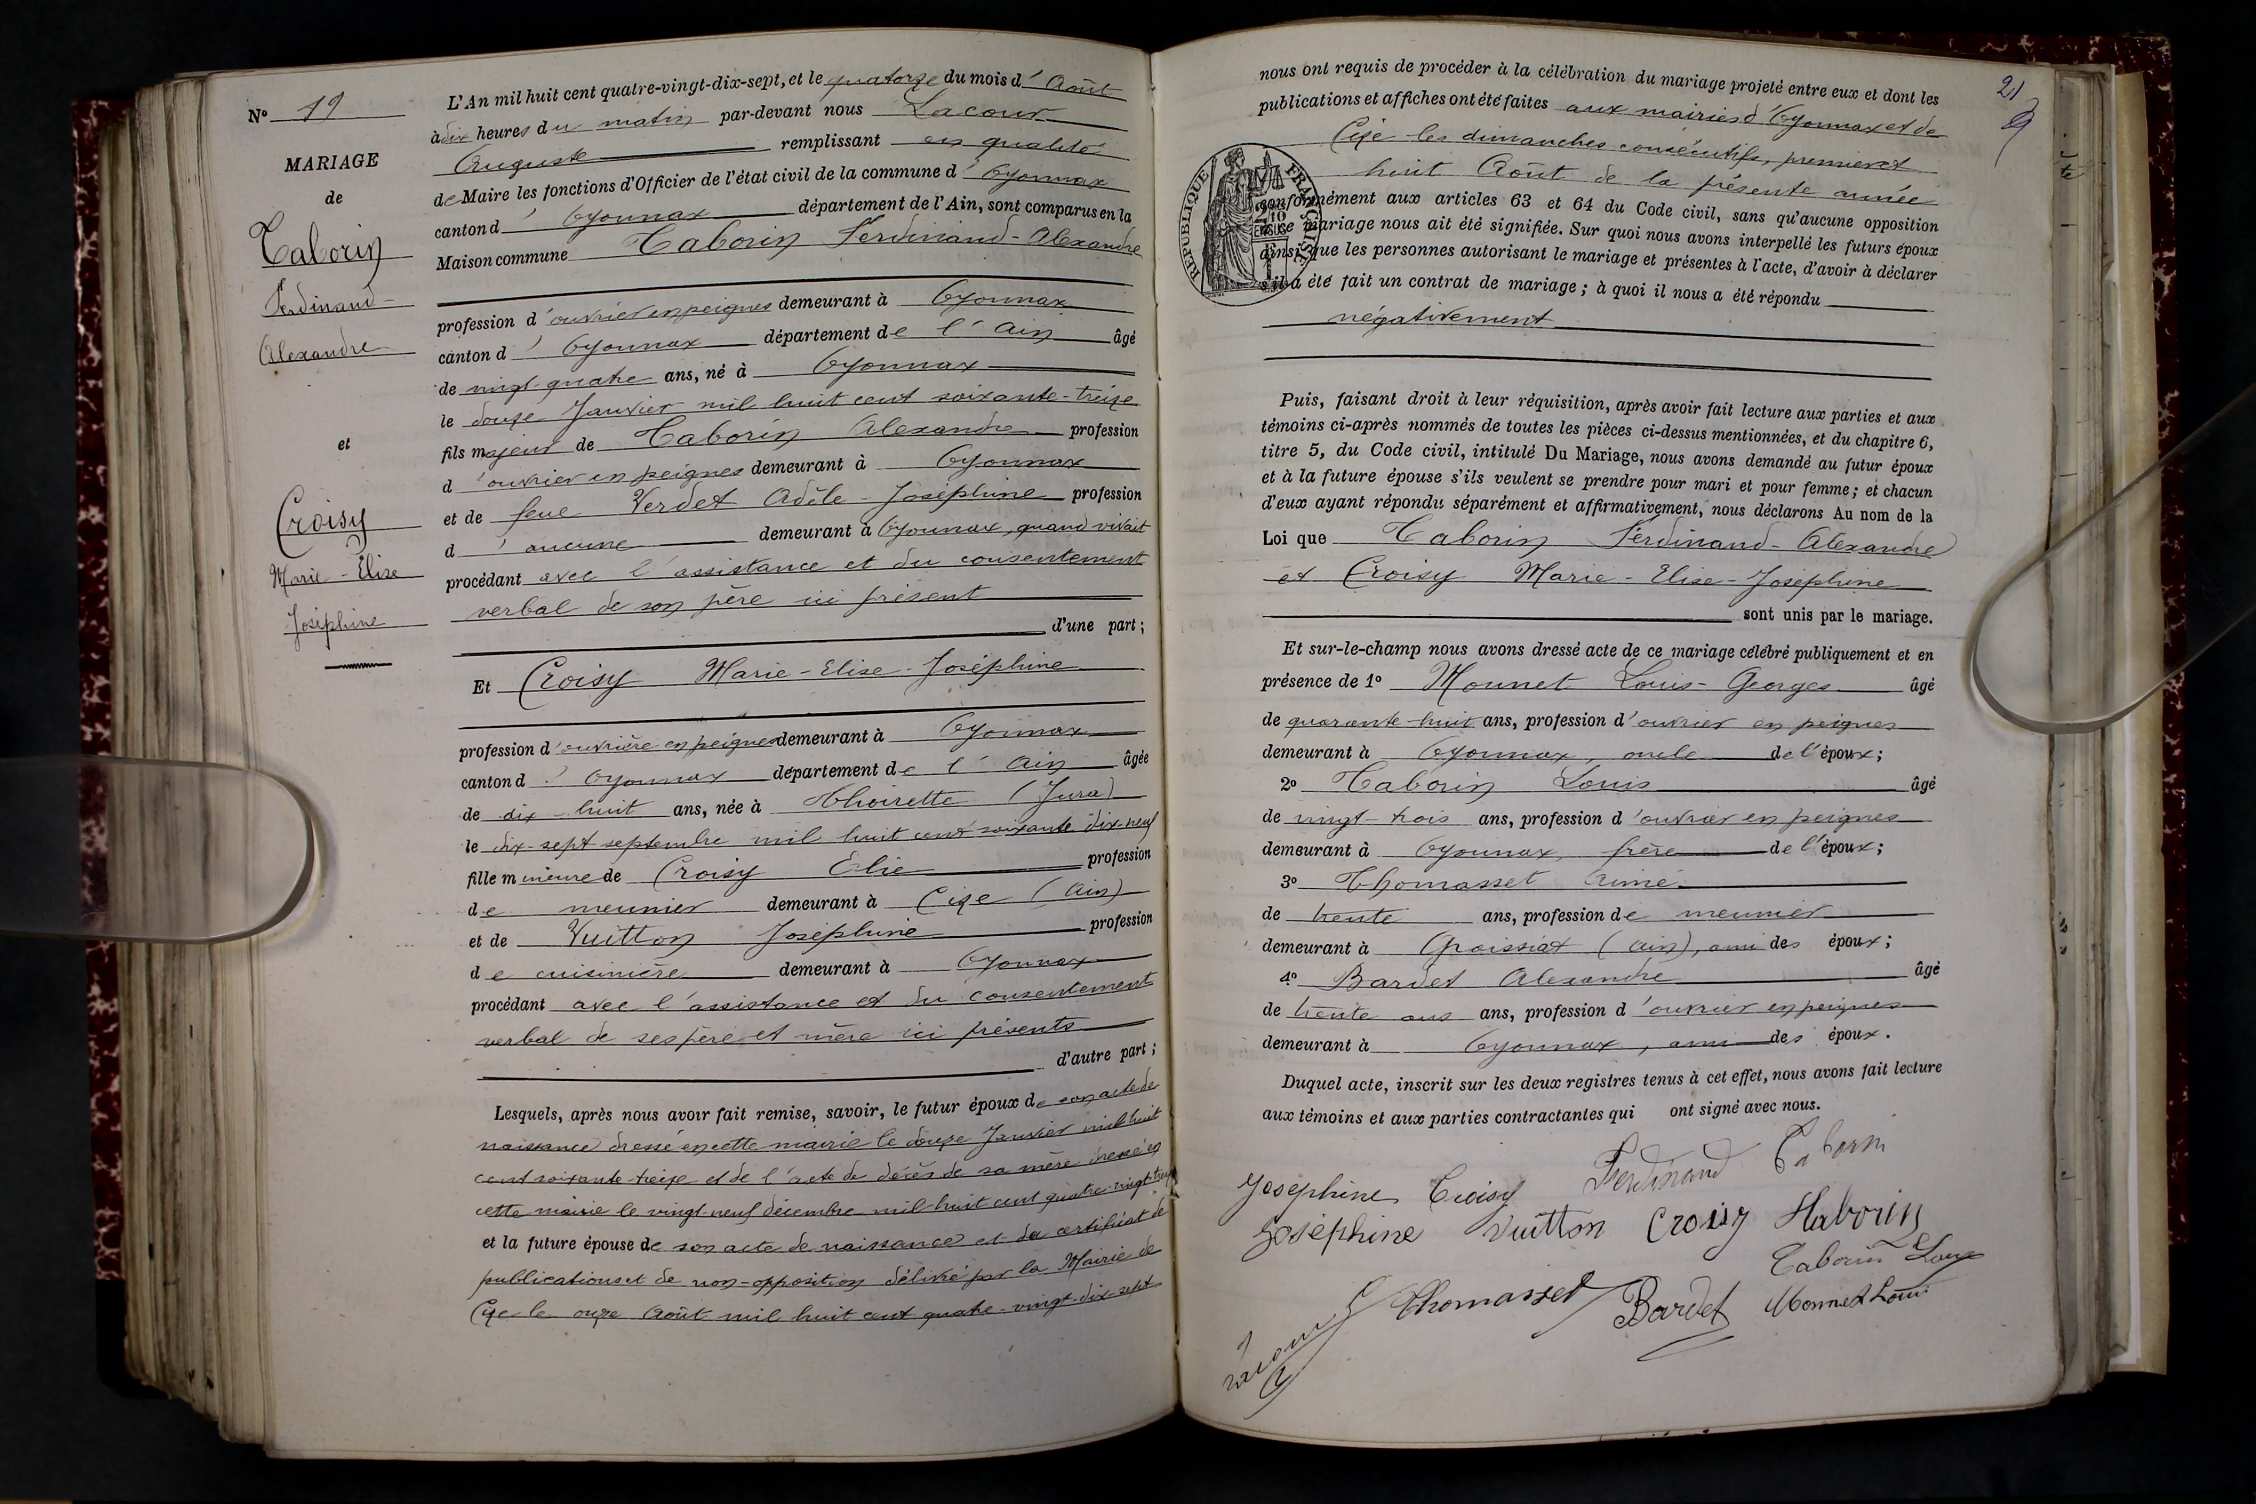 N° 19
MARIAGE
de
Taborin
Ferdinand-
Alexandre
et
Croisy
Marie-Elise
Joséphine
L'An mil huit cent quatre-vingt-dix-sept, et le quatorze du mois d'Août
à dix heures du matin par-devant nous Lacour
Auguste remplissant en qualité
de Maire les fonctions d'Officier de l'état civil de la commune d'Oyonnax
canton d'Oyonnax département de l'Ain, sont comparus en la
Maison commune Taborin Ferdinand-Alexandre
profession d'ouvrier en peignes demeurant à Oyonnax
canton d'Oyonnax département de l'Ain âgé
de vingt-quatre ans, né à Oyonnax
le douze Janvier mil huit cent soixante-treize
fils majeur de Taborin Alexandre profession
d'ouvrier en peignes demeurant à Oyonnax
et de feue Verdet Adèle-Joséphine profession
d'aucune demeurant à Oyonnax, quand vivait
procédant avec l'assistance et du consentement
verbal de son père ici présent
d'une part;
Et Croisy Marie-Elise-Joséphine
profession d'ouvrière en peignes demeurant à Oyonnax
canton d'Oyonnax département de l'Ain âgée
de dix-huit ans, née à Thoirette (Jura)
le dix-sept septembre mil huit cent soixante dix-neuf
fille mineure de Croisy Elie profession
de meunier demeurant à Cize (Ain)
et de Vuitton Joséphine profession
de cuisinière demeurant à Oyonnax
procédant avec l'assistance et du consentement
verbal de ses père et mère ici présents
d'autre part;
Lesquels, après nous avoir fait remise, savoir, le futur époux de son acte de
naissance dressé en cette mairie le douze Janvier mil huit
cent soixante-treize et de l'acte de décès de sa mère dressé en
cette mairie le vingt-neuf décembre mil-huit cent quatre-vingt-treize
et la future épouse de son acte de naissance et du certificat de
publications et de non-opposition délivré par la Mairie de
Cize le onze Août mil huit cent quatre-vingt-dix-sept
21
nous ont requis de procéder à la célébration du mariage projeté entre eux et dont les
publications et affiches ont été faites aux mairies d'Oyonnax et de
Cize les dimanches consécutifs, premier et
huit Août de la présente année
conformément aux articles 63 et 64 du Code civil, sans qu'aucune opposition
à ce mariage nous ait été signifiée. Sur quoi nous avons interpellé les futurs époux
ainsi que les personnes autorisant le mariage et présentes à l'acte, d'avoir à déclarer
s'il a été fait un contrat de mariage; à quoi il nous a été répondu
négativement
RÉPUBLIQUE FRANÇAISE
2/10 EN SUS
Puis, faisant droit à leur réquisition, après avoir fait lecture aux parties et aux
témoins ci-après nommés de toutes les pièces ci-dessus mentionnées, et du chapitre 6,
titre 5, du Code civil, intitulé Du Mariage, nous avons demandé au futur époux
et à la future épouse s'ils veulent se prendre pour mari et pour femme; et chacun
d'eux ayant répondu séparément et affirmativement, nous déclarons Au nom de la
Loi que Taborin Ferdinand-Alexandre
et Croisy Marie-Elise-Joséphine
sont unis par le mariage.
Et sur-le-champ nous avons dressé acte de ce mariage célébré publiquement et en
présence de 1° Monnet Louis-Georges âgé
de quarante-huit ans, profession d'ouvrier en peignes
demeurant à Oyonnax, oncle de l'époux;
2° Taborin Louis âgé
de vingt-trois ans, profession d'ouvrier en peignes
demeurant à Oyonnax, frère de l'époux;
3° Thomasset Aimé
de trente ans, profession de meunier
demeurant à Groissiat (Ain), ami des époux;
4° Bardet Alexandre âgé
de trente ans ans, profession d'ouvrier en peignes
demeurant à Oyonnax, ami des époux.
Duquel acte, inscrit sur les deux registres tenus à cet effet, nous avons fait lecture
aux témoins et aux parties contractantes qui ont signé avec nous.
Joséphine Croisy Ferdinand Taborin
Joséphine Vuitton Croisy Taborin
Taborin Louis
Thomasset Bardet Monnet Louis
Lacour